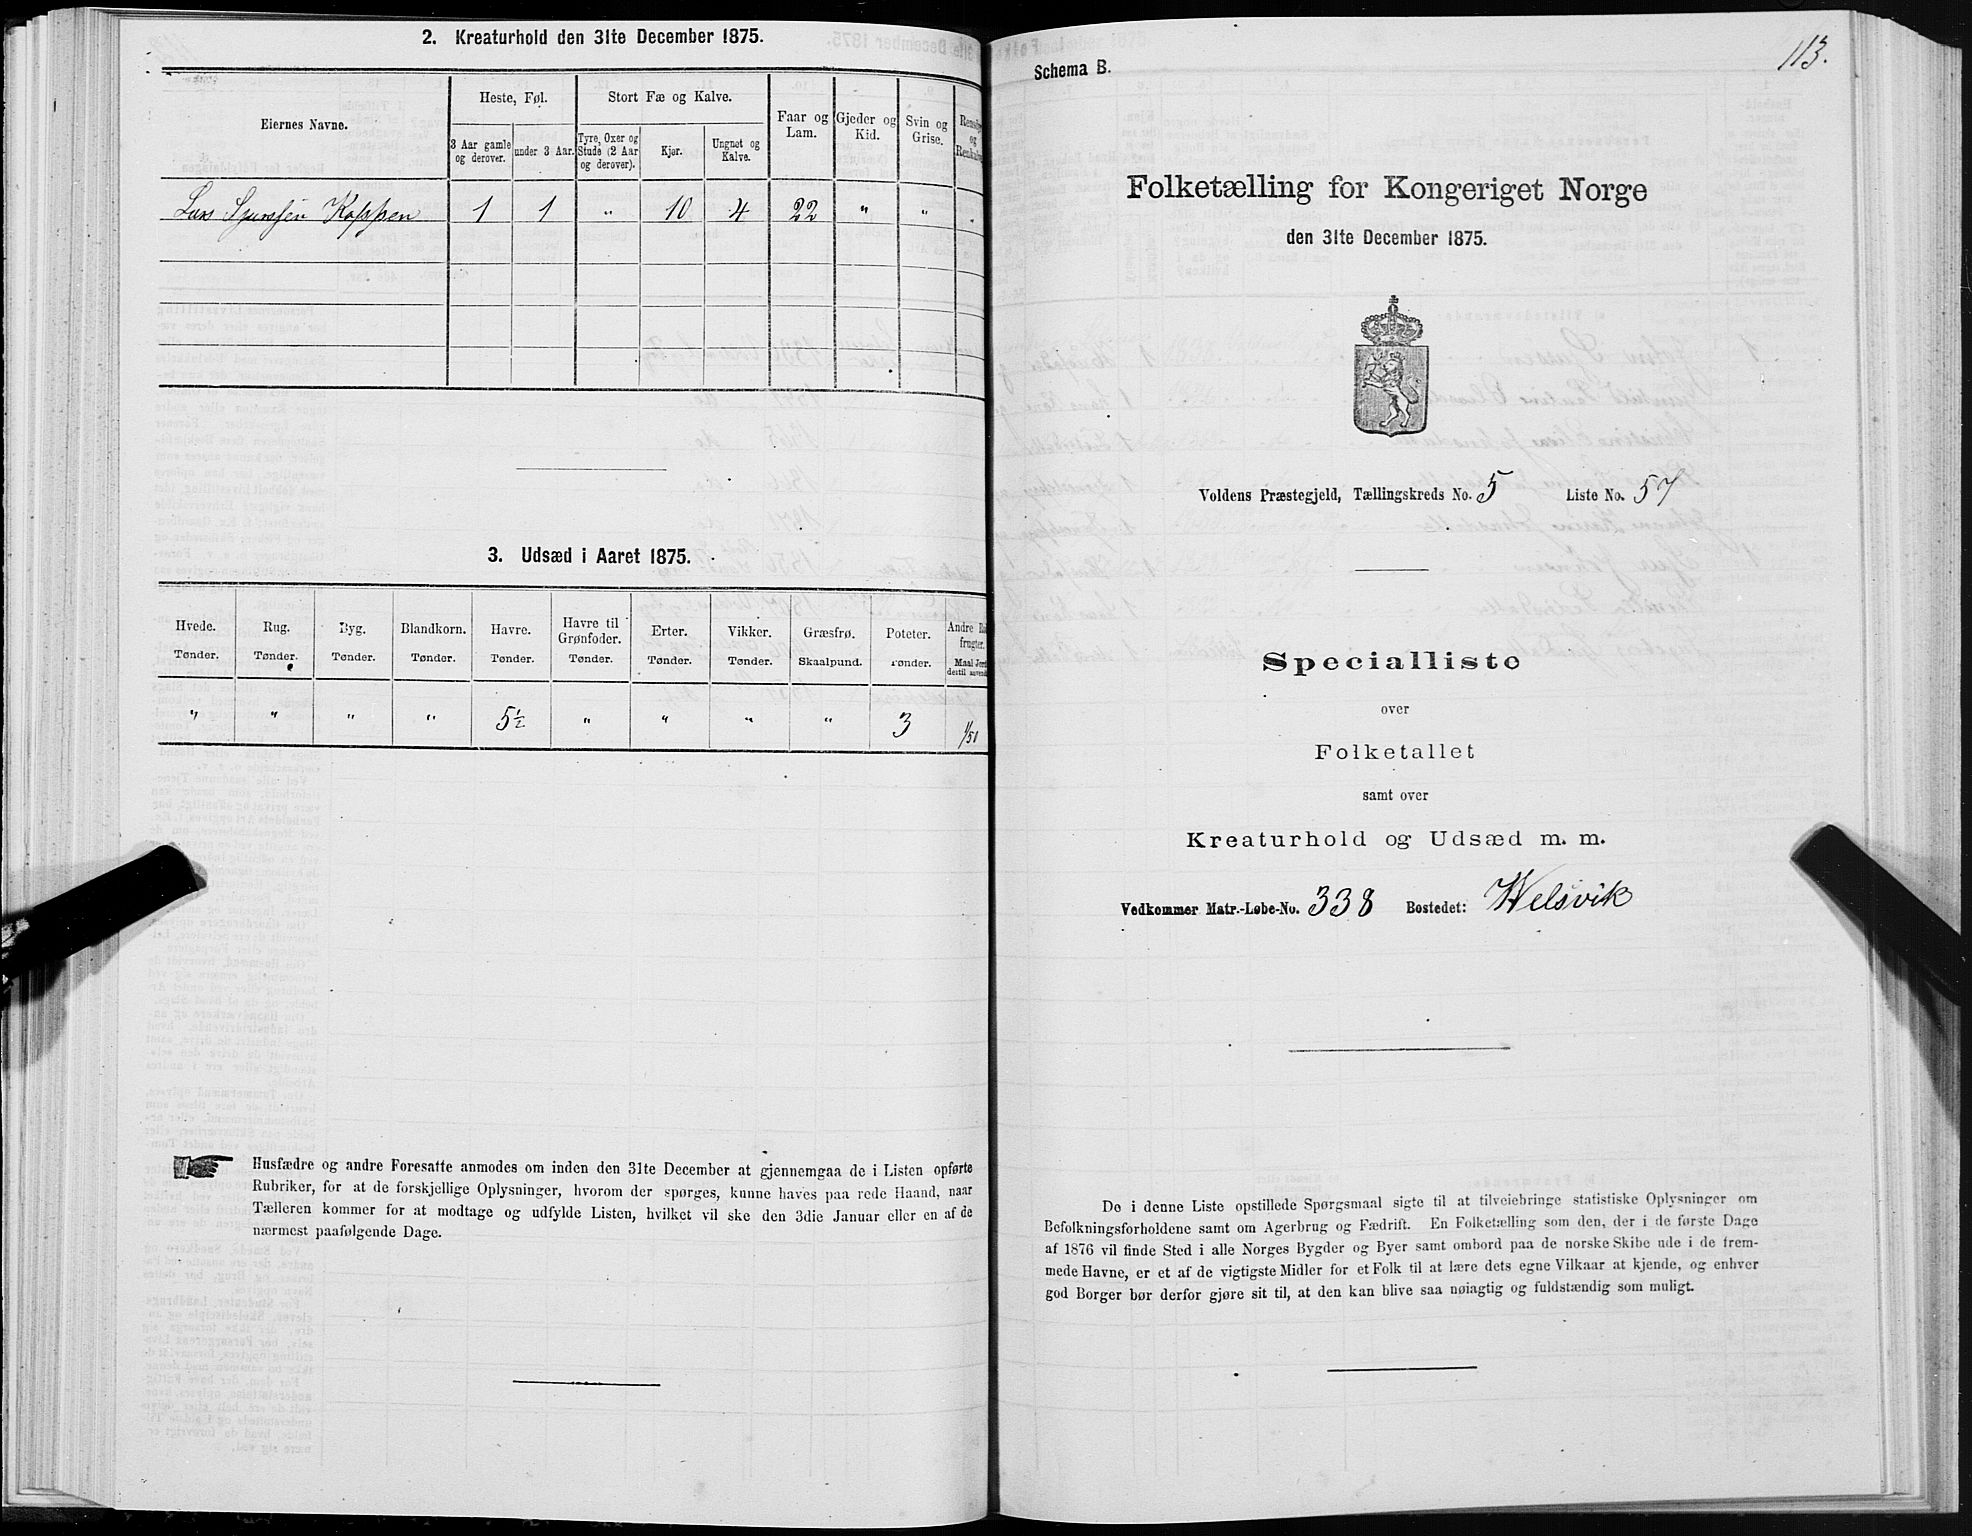 2. Kreaturhold den 31te December 1875.
Eiernes Navne.
Heste, Føl.
Stort Fæ og Kalve.
Faar og Lam.
Gjeder og Kid.
Svin og Grise.
3 Aar gamle og derover.
under 3 Aar.
Tyre, Oxer og Stude (2 Aar og derover).
Kjør.
Ungnøt og Kalve.
Lars Koppen 1 1 " 10 4 22 " " "
3. Udsæd i Aaret 1875.
Hvede. Rug. Byg. Blandkorn. Havre. Havre til Grønfoder. Erter. Vikker. Græsfrø. Poteter. Andre
Tønder. Tønder. Tønder. Tønder. Tønder. Tønder. Tønder. Tønder. Skaalpund. Tønder.
" " " " 5½ " " " " 3 1/50
Husfædre og andre Foresatte anmodes om inden den 31te December at gjennemgaa de i Listen opførte
Rubriker, for at de forskjellige Oplysninger, hvorom der spørges, kunne haves paa rede Haand, naar
Tælleren kommer for at modtage og udfylde Listen, hvilket vil ske den 3die Januar eller en af de
nærmest paafølgende Dage.
113.
Schema B.
Folketælling for Kongeriget Norge
den 31te December 1875.
Voldens Præstegjeld, Tællingskreds No. 5 Liste No. 57
Specialliste
over
Folketallet
samt over
Kreaturhold og Udsæd m. m.
Vedkommer Matr.-Løbe-No. 338 Bostedet: Welsvik
De i denne Liste opstillede Spørgsmaal sigte til at tilveiebringe statistiske Oplysninger om
Befolkningsforholdene samt om Agerbrug og Fædrift. En Folketælling som den, der i de første Dage
af 1876 vil finde Sted i alle Norges Bygder og Byer samt ombord paa de norske Skibe ude i de frem-
mede Havne, er et af de vigtigste Midler for et Folk til at lære dets egne Vilkaar at kjende, og enhver
god Borger bør derfor gjøre sit til, at den kan blive saa nøiagtig og fuldstændig som muligt.